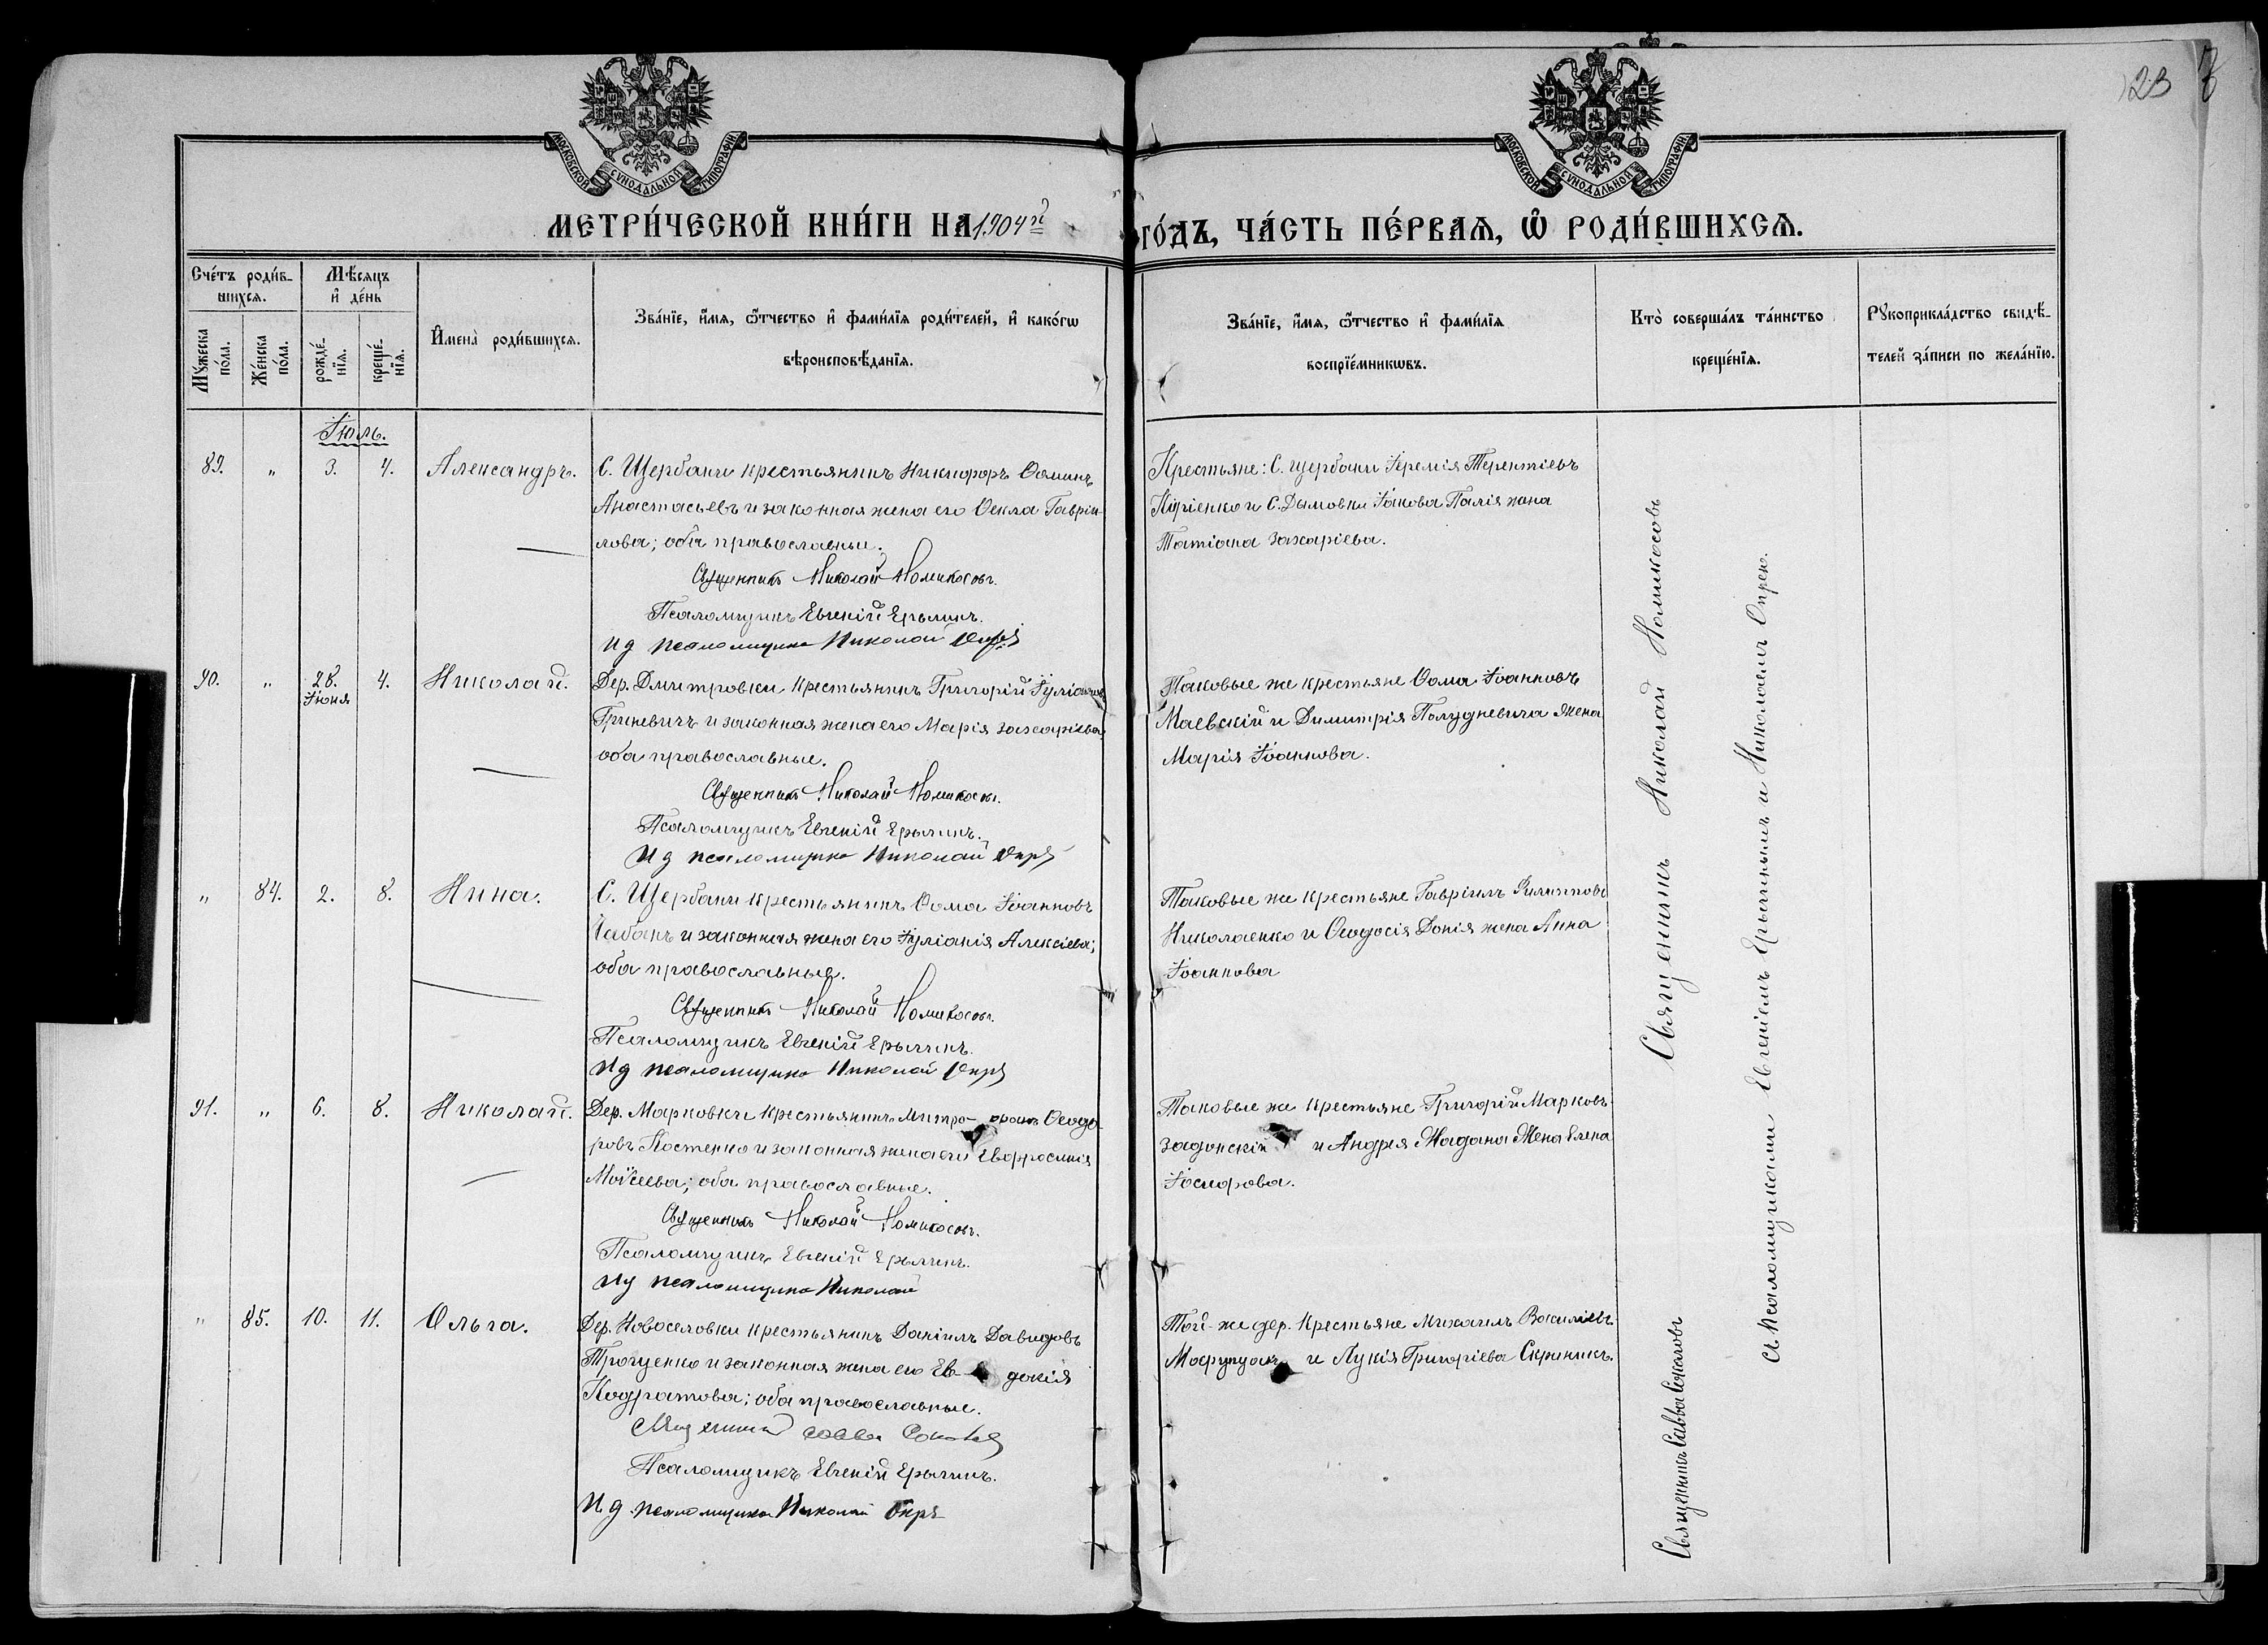 23
МОСКОВСКОЙ СУНОДАЛЬНОЙ ТИПОГРАФІИ
МОСКОВСКОЙ СУНОДАЛЬНОЙ ТИПОГРАФІИ
МЕТРИ́ЧЕСКОЙ КНИ́ГИ НА 1904й ГО́ДЪ, ЧА́СТЬ ПЕ́РВАѦ, Ѽ РОДИ́ВШИХСѦ.
Сче́тъ роди́вшихсѧ.
Мѣ́сѧцъ и҆ де́нь
Мꙋ́жеска по́ла.
Же́нска по́ла.
рожде́нїѧ.
креще́нїѧ.
И҆мена̀ роди́вшихсѧ.
Зва́нїе, и҆́мѧ, ѻ҆́тчество и҆ фами́лїѧ роди́телей, и҆ како́гѡ
вѣроисповѣ́данїѧ.
Зва́нїе, и҆́мѧ, ѻ҆́тчество и҆ фами́лїѧ
воспрїе́мникѡвъ.
Кто̀ соверша́лъ та́инство
креще́нїѧ.
Рꙋкоприкла́дство свидѣ́телей за́писи по жела́нїю.
Іюль.
89. " 3. 4. Александръ.
С. Щербани крестьянинъ Никифоръ Ѳоминъ
Анастасьевъ и законная жена его Ѳекла Гаврiи-
лова; оба православные.
Священникъ Николай Номикосовъ.
Псаломщикъ Евгеній Ерыгинъ.
И д псаломщика Николай Опря
Крестьяне: С. Щербани Іеремія Терентіевъ
Куріенко и С. Дымовки Іакова Палія жена
Татіана Захаріева.
90. " 28. Іюня 4. Николай.
Дер. Дмитровки крестьянинъ Григорій Іуліановъ
Гриневичъ и законная жена его Марія Захаріева
оба православные.
Священникъ Николай Номикосовъ.
Псаломщикъ Евгеній Ерыгинъ.
И д псаломщика Николай Опря
Таковые же крестьяне Ѳома Іоанновъ
Маевскій и Димитрія Полудневича жена
Марія Іоаннова.
" 84. 2. 8. Нина.
С. Щербани крестьянинъ Ѳома Іоанновъ
Чабанъ и законная жена его Іуліанія Алексіева;
оба православные.
Священникъ Николай Номикосовъ.
Псаломщикъ Евгеній Ерыгинъ.
И д псаломщика Николай Опря
Таковые же крестьяне Гавріилъ Филипповъ
Николаенко и Ѳеодосія Донія жена Анна
Іоаннова
91. " 6. 8. Николай.
Дер. Марковки крестьянинъ Митро-фанъ Ѳеодо-
ровъ Костенко и законная жена его Евфросинія
Моисеева; оба православные.
Священникъ Николай Номикосовъ.
Псаломщикъ Евгеній Ерыгинъ.
И д псаломщика Николай
Таковые же крестьяне Григорій Марковъ
Задонскій и Андрея Жадана жена Елена
Іосифова.
" 85. 10. 11. Ольга.
Дер. Новоселовки крестьянинъ Даніилъ Давидовъ
Троценко и законная жена его Ев-докія
Кодратова; оба православные.
Священникъ Савва Соколовъ
Псаломщикъ Евгеній Ерыгинъ.
И. д. псаломщика Николай Опря
Той-же дер. крестьяне Михаилъ Василіевъ
и Лукія Григоріева Скрипникъ.
Священникъ Николай Номикосовъ
Священникъ Савва Соколовъ
съ псаломщиками Евгеніемъ Ерыгинымъ и Николаемъ Опрею.